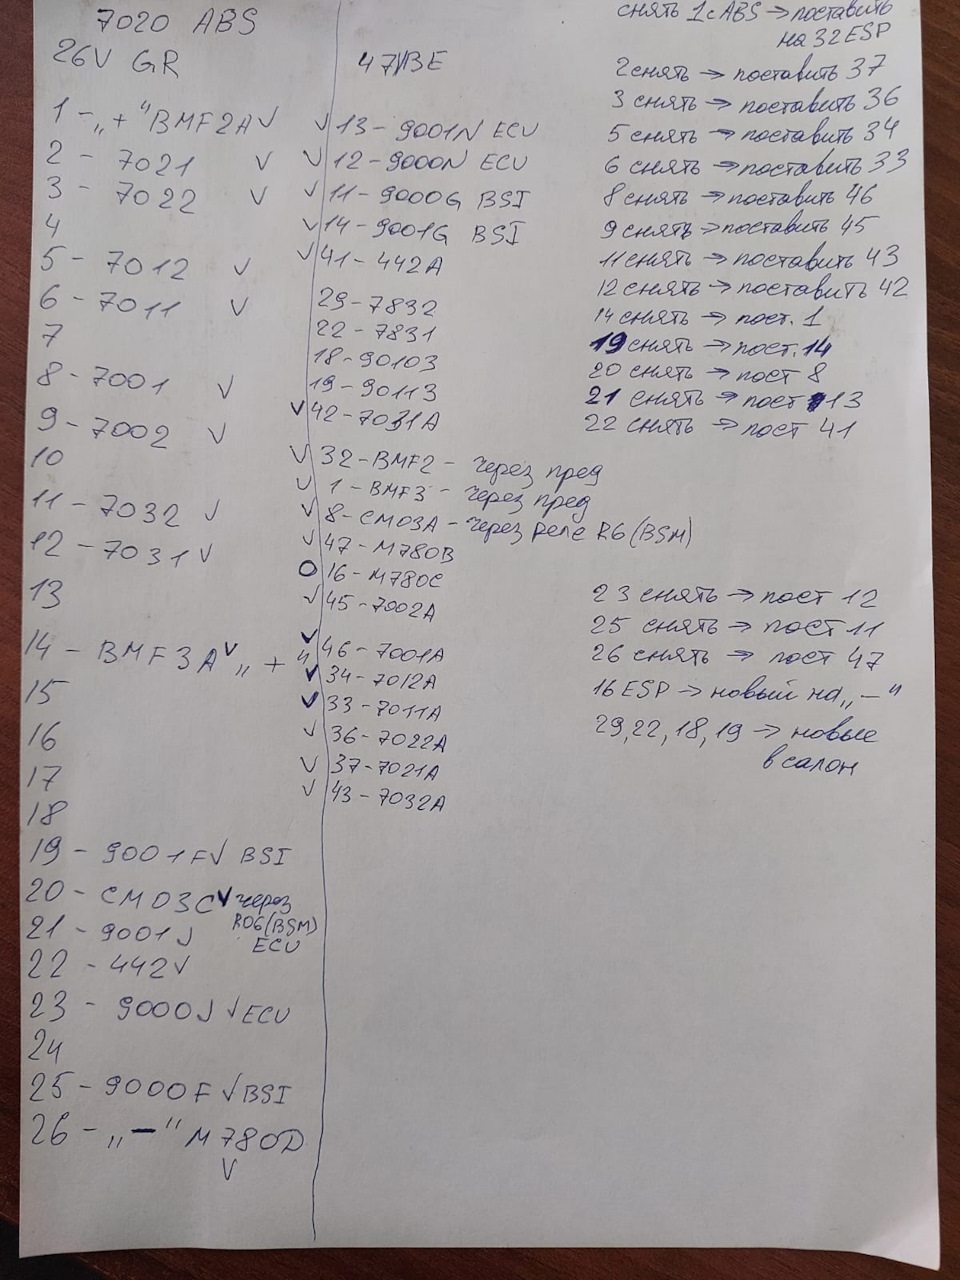 7020 ABS
26V GR
1 - „+" BMF2A V
2 - 7021 V
3 - 7022 V
4
5 - 7012 V
6 - 7011 V
7
8 - 7001 V
9 - 7002 V
10
11 - 7032 V
12 - 7031 V
13
14 - BMF3A V „+"
15
16
17
18
19 - 9001F V BSI
20 - CM03C V через
R06(BSM)
21 - 9001J
ECU
22 - 442 V
23 - 9000J V ECU
24
25 - 9000F V BSI
26 - „—" M780D
V
47VBE
V 13 - 9001N ECU
V 12 - 9000N ECU
V 11 - 9000G BSI
V 14 - 9001G BSI
V 41 - 442A
29 - 7832
22 - 7831
18 - 90103
19 - 90113
V 42 - 7031A
V 32 - BMF2 - через пред
V 1 - BMF3 - через пред
V 8 - CM03A - через реле R6(BSM)
V 47 - M780B
O 16 - M780C
V 45 - 7002A
V 46 - 7001A
V 34 - 7012A
V 33 - 7011A
V 36 - 7022A
V 37 - 7021A
V 43 - 7032A
снять 1 с ABS → поставить
на 32 ESP
2 снять → поставить 37
3 снять → поставить 36
5 снять → поставить 34
6 снять → поставить 33
8 снять → поставить 46
9 снять → поставить 45
11 снять → поставить 43
12 снять → поставить 42
14 снять → пост. 1
19 снять → пост. 14
20 снять → пост 8
21 снять → пост 13
22 снять → пост 41
23 снять → пост 12
25 снять → пост 11
26 снять → пост 47
16 ESP → новый на „—"
29, 22, 18, 19 → новые
в салон